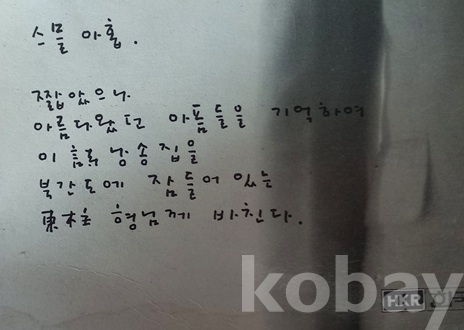 스물 아홉.
짧았으나
아름다웠던 아픔들을 기억하여
이 음악 낭송집을
북간도에 잠들어 있는
東柱 형님께 바친다.
kobay
HKR